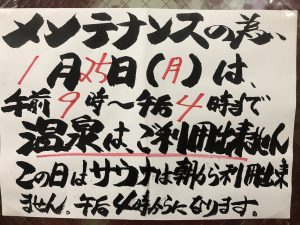 メンテナンスの為、
1月25日(月)は、
午前9時〜午后4時まで
温泉は、ご利用出来ません
この日はサウナは朝から利用出来
ません。午后4時からになります。